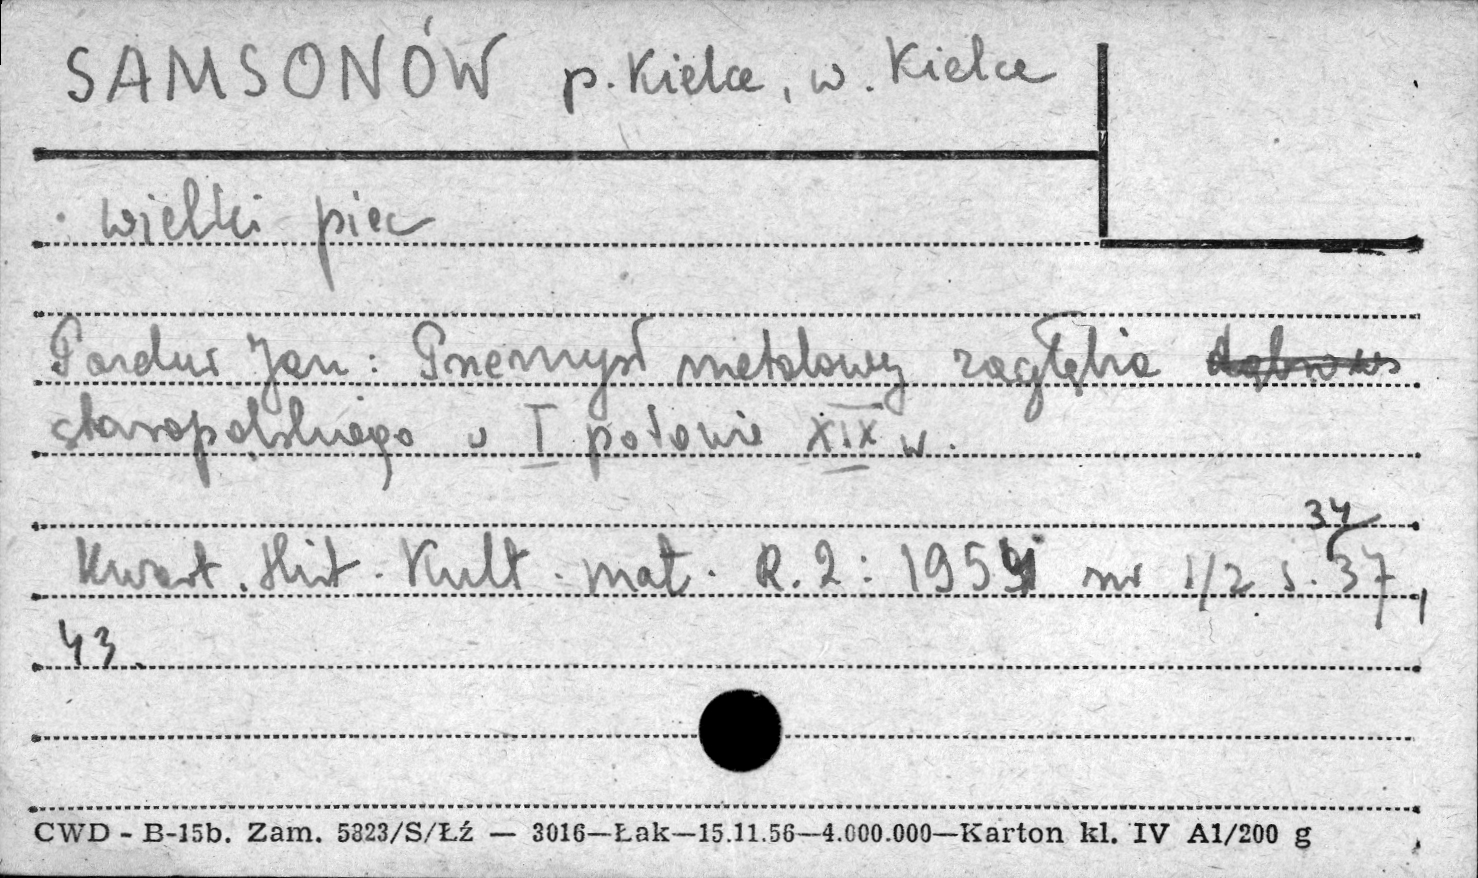 SAMSONÓW p. Kielce, w. Kielce
wielki piec
Pazdur Jan: Przemysł metalowy zagłębia
staropolskiego w I połowie XIX w.
34
Kwart. Hist. Kult. mat. R. 2: 1954 nr 1/2 s. 37,
43.
CWD - B-15b. Zam. 5823/S/Łź — 3016—Łak—15.11.56—4.000.000—Karton kl. IV A1/200 g